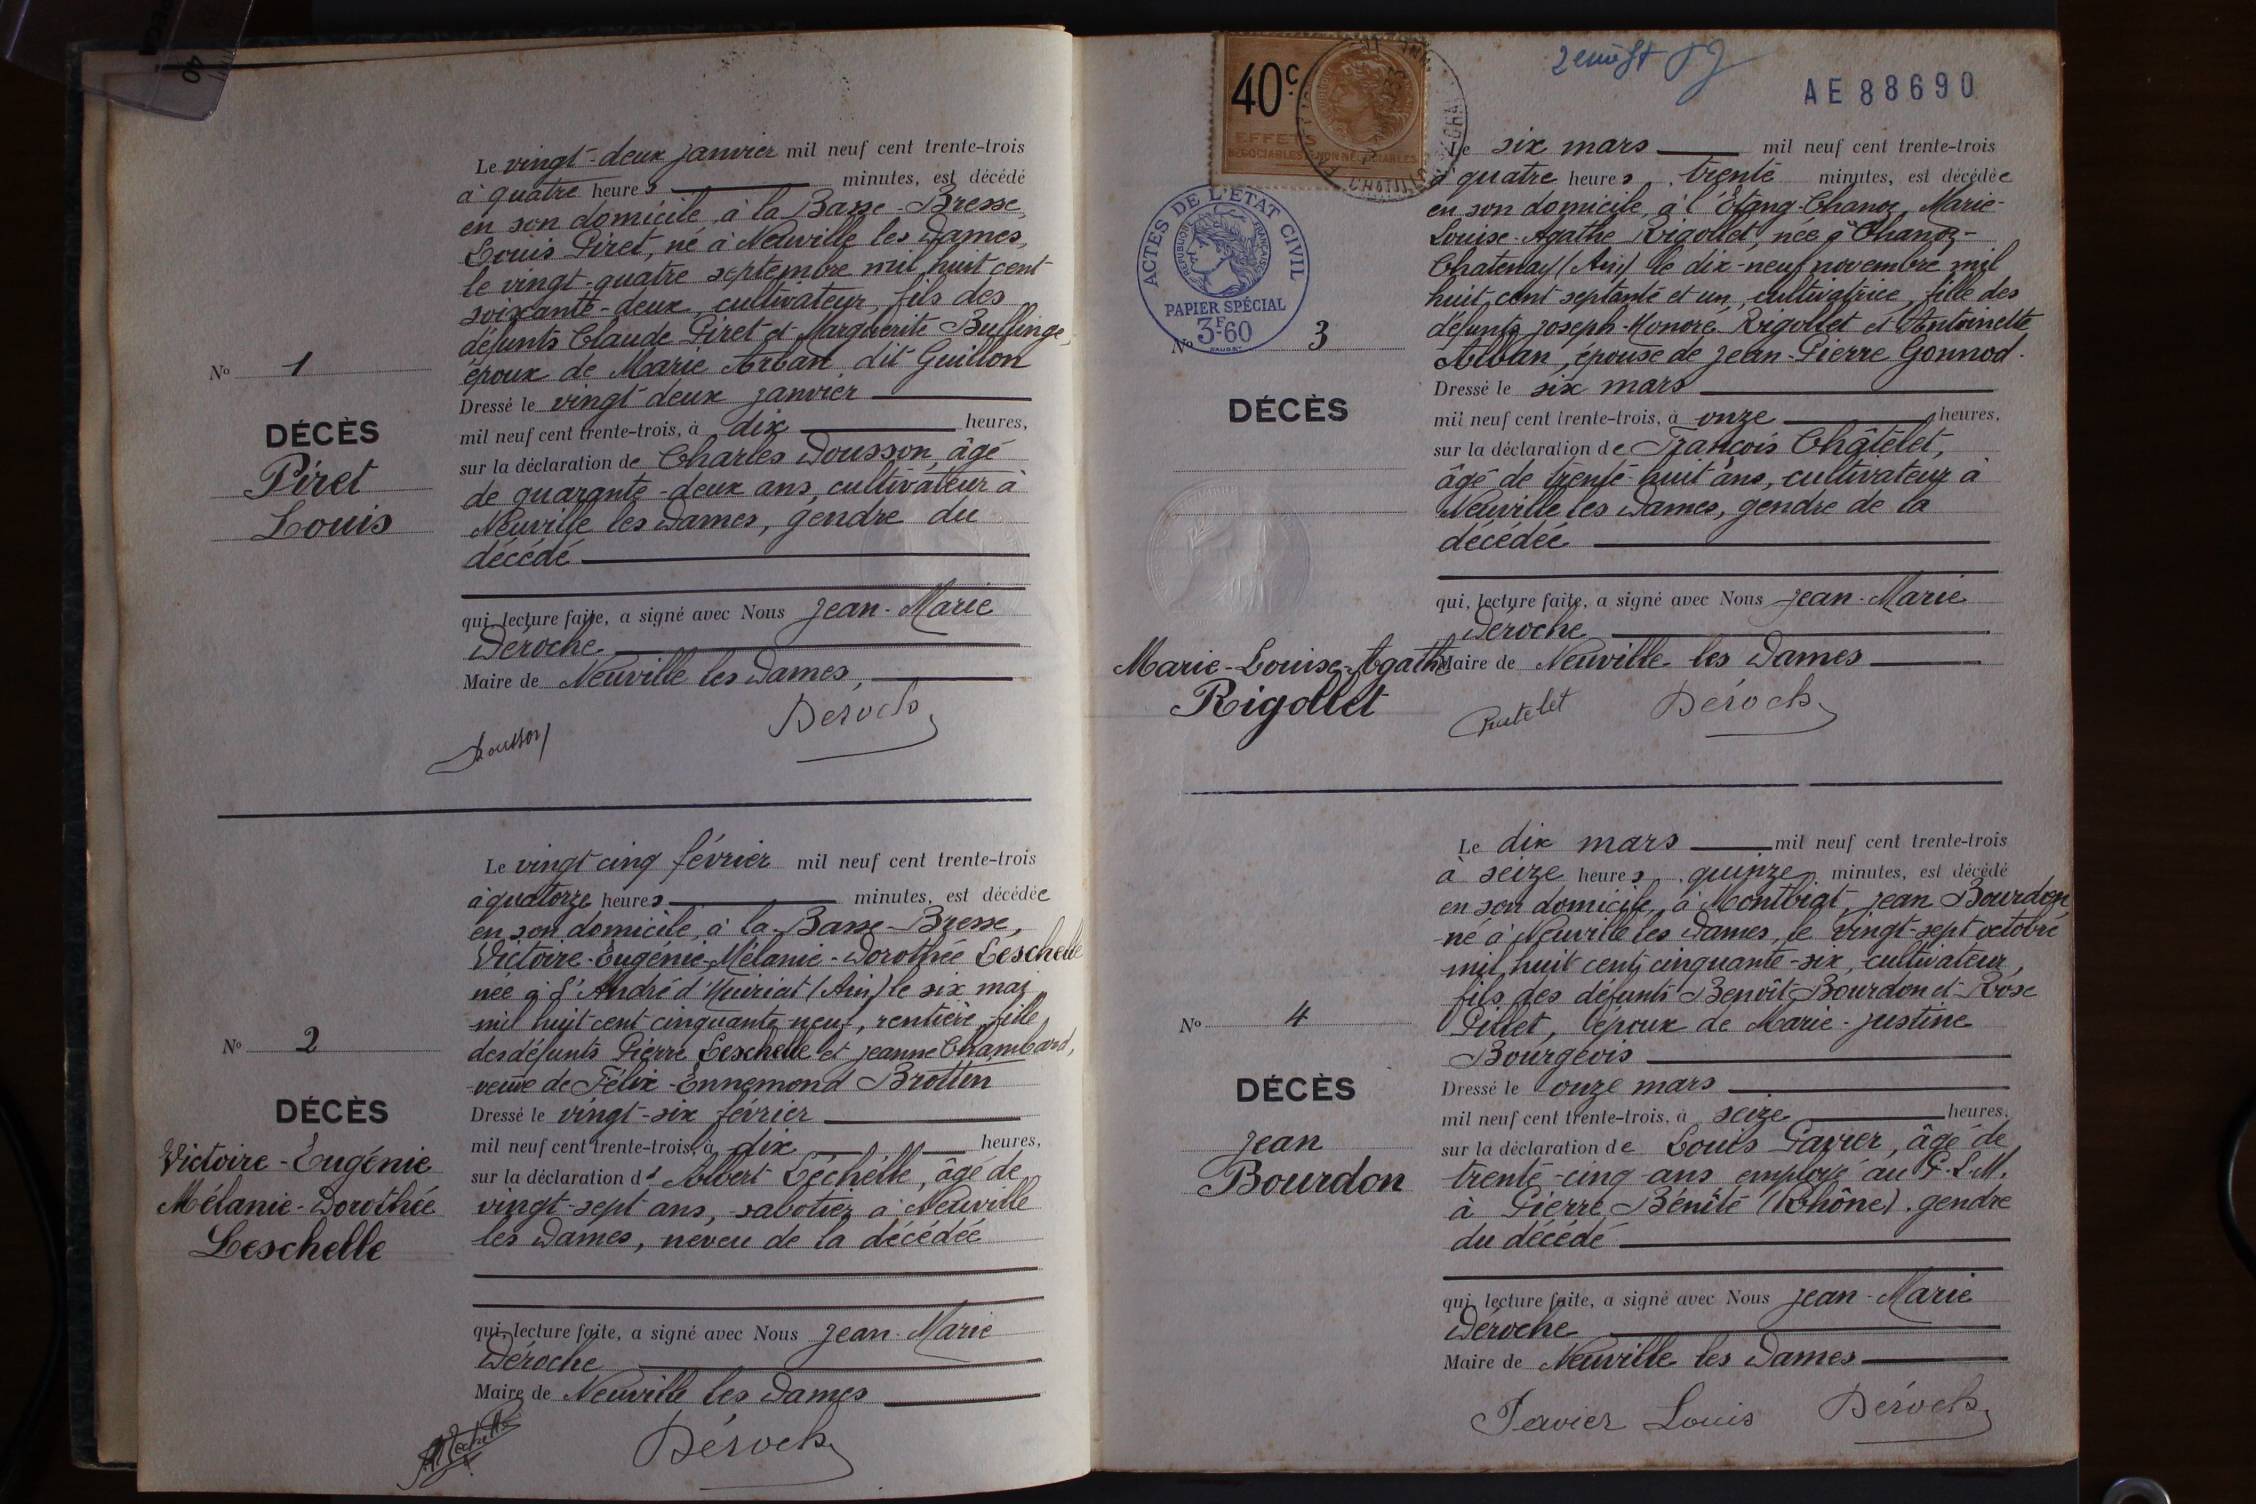 Le vingt-deux janvier mil neuf cent trente-trois
à quatre heures minutes, est décédé
en son domicile, à la Basse-Bresse,
Louis Piret, né à Neuville les Dames,
le vingt-quatre septembre mil huit cent
soixante-deux, cultivateur, fils des
défunts Claude Piret et Marguerite Buffinge,
époux de Marie Arban dit Guillon
Dressé le vingt deux janvier
mil neuf cent trente-trois, à dix heures,
sur la déclaration de Charles Dousson, âgé
de quarante-deux ans, cultivateur à
Neuville les Dames, gendre du
décédé
qui, lecture faite, a signé avec Nous Jean-Marie
Déroche
Maire de Neuville les Dames,
Dousson Déroche
No 1
DÉCÈS
Piret
Louis
Le vingt cinq février mil neuf cent trente-trois
à quatorze heures minutes, est décédée
en son domicile, à la Basse-Bresse,
Victoire-Eugénie-Mélanie-Dorothée Leschelle
née à St André d'Huiriat (Ain) le six mai
mil huit cent cinquante neuf, rentière, fille
des défunts Pierre Leschelle et Jeanne Chambard,
veuve de Félix-Ennemond Brottin
Dressé le vingt-six février
mil neuf cent trente-trois, à dix heures,
sur la déclaration d' Albert Léchelle, âgé de
vingt-sept ans, sabotier à Neuville
les Dames, neveu de la décédée
qui, lecture faite, a signé avec Nous Jean-Marie
Déroche
Maire de Neuville les Dames
Déroche
No 2
DÉCÈS
Victoire-Eugénie
Mélanie-Dorothée
Leschelle
40c
EFFETS
NÉGOCIABLES & NON NÉGOCIABLES
AE 88690
ACTES DE L'ÉTAT CIVIL
RÉPUBLIQUE FRANÇAISE
PAPIER SPÉCIAL
3F60
Le six mars mil neuf cent trente-trois
à quatre heures, trente minutes, est décédée
en son domicile, à l'Étang-Chanoz, Marie-
Louise-Agathe Rigollet, née à Chanoz-
Chatenay (Ain) le dix-neuf novembre mil
huit cent septante et un, cultivatrice, fille des
défunts Joseph-Honoré Rigollet et Antoinette
Alban, épouse de Jean-Pierre Gonnod.
Dressé le six mars
mil neuf cent trente-trois, à onze heures,
sur la déclaration de François Châtelet,
âgé de trente-huit ans, cultivateur à
Neuville les Dames, gendre de la
décédée
qui, lecture faite, a signé avec Nous Jean-Marie
Déroche
Maire de Neuville les Dames
Chatelet Déroche
No 3
DÉCÈS
Marie-Louise-Agathe
Rigollet
Le dix mars mil neuf cent trente-trois
à seize heures, quinze minutes, est décédé
en son domicile, à Montbiat, Jean Bourdon,
né à Neuville les Dames, le vingt-sept octobre
mil huit cent cinquante-six, cultivateur,
fils des défunts Benoît Bourdon et Rose
Pillet, époux de Marie-Justine
Bourgeois
Dressé le onze mars
mil neuf cent trente-trois, à seize heures,
sur la déclaration de Louis Pavier, âgé de
trente-cinq ans employé au P.L.M.
à Pierre Bénite (Rhône). gendre
du décédé
qui, lecture faite, a signé avec Nous Jean-Marie
Déroche
Maire de Neuville les Dames
Louis Déroche
No 4
DÉCÈS
Jean
Bourdon